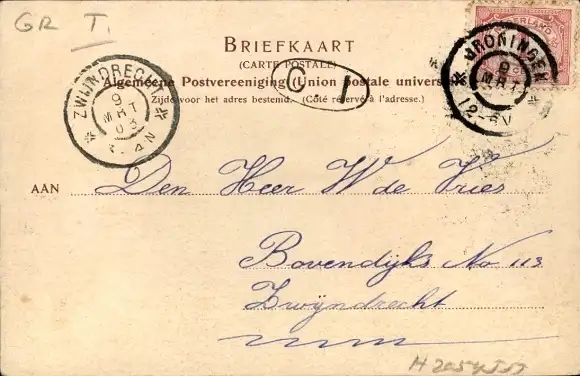 GR T.
BRIEFKAART
(CARTE POSTALE)
Algemeene Postvereeniging (Union postale univers
Zijde voor het adres bestemd. (Côté réservé à l'adresse.)
ZWIJNDRECHT
9
MRT
03
4N
NEDERLAND
GRONINGEN
9
MRT
12-
AAN Den Heer W de Vries
Bovendijks No 113
Zwijndrecht